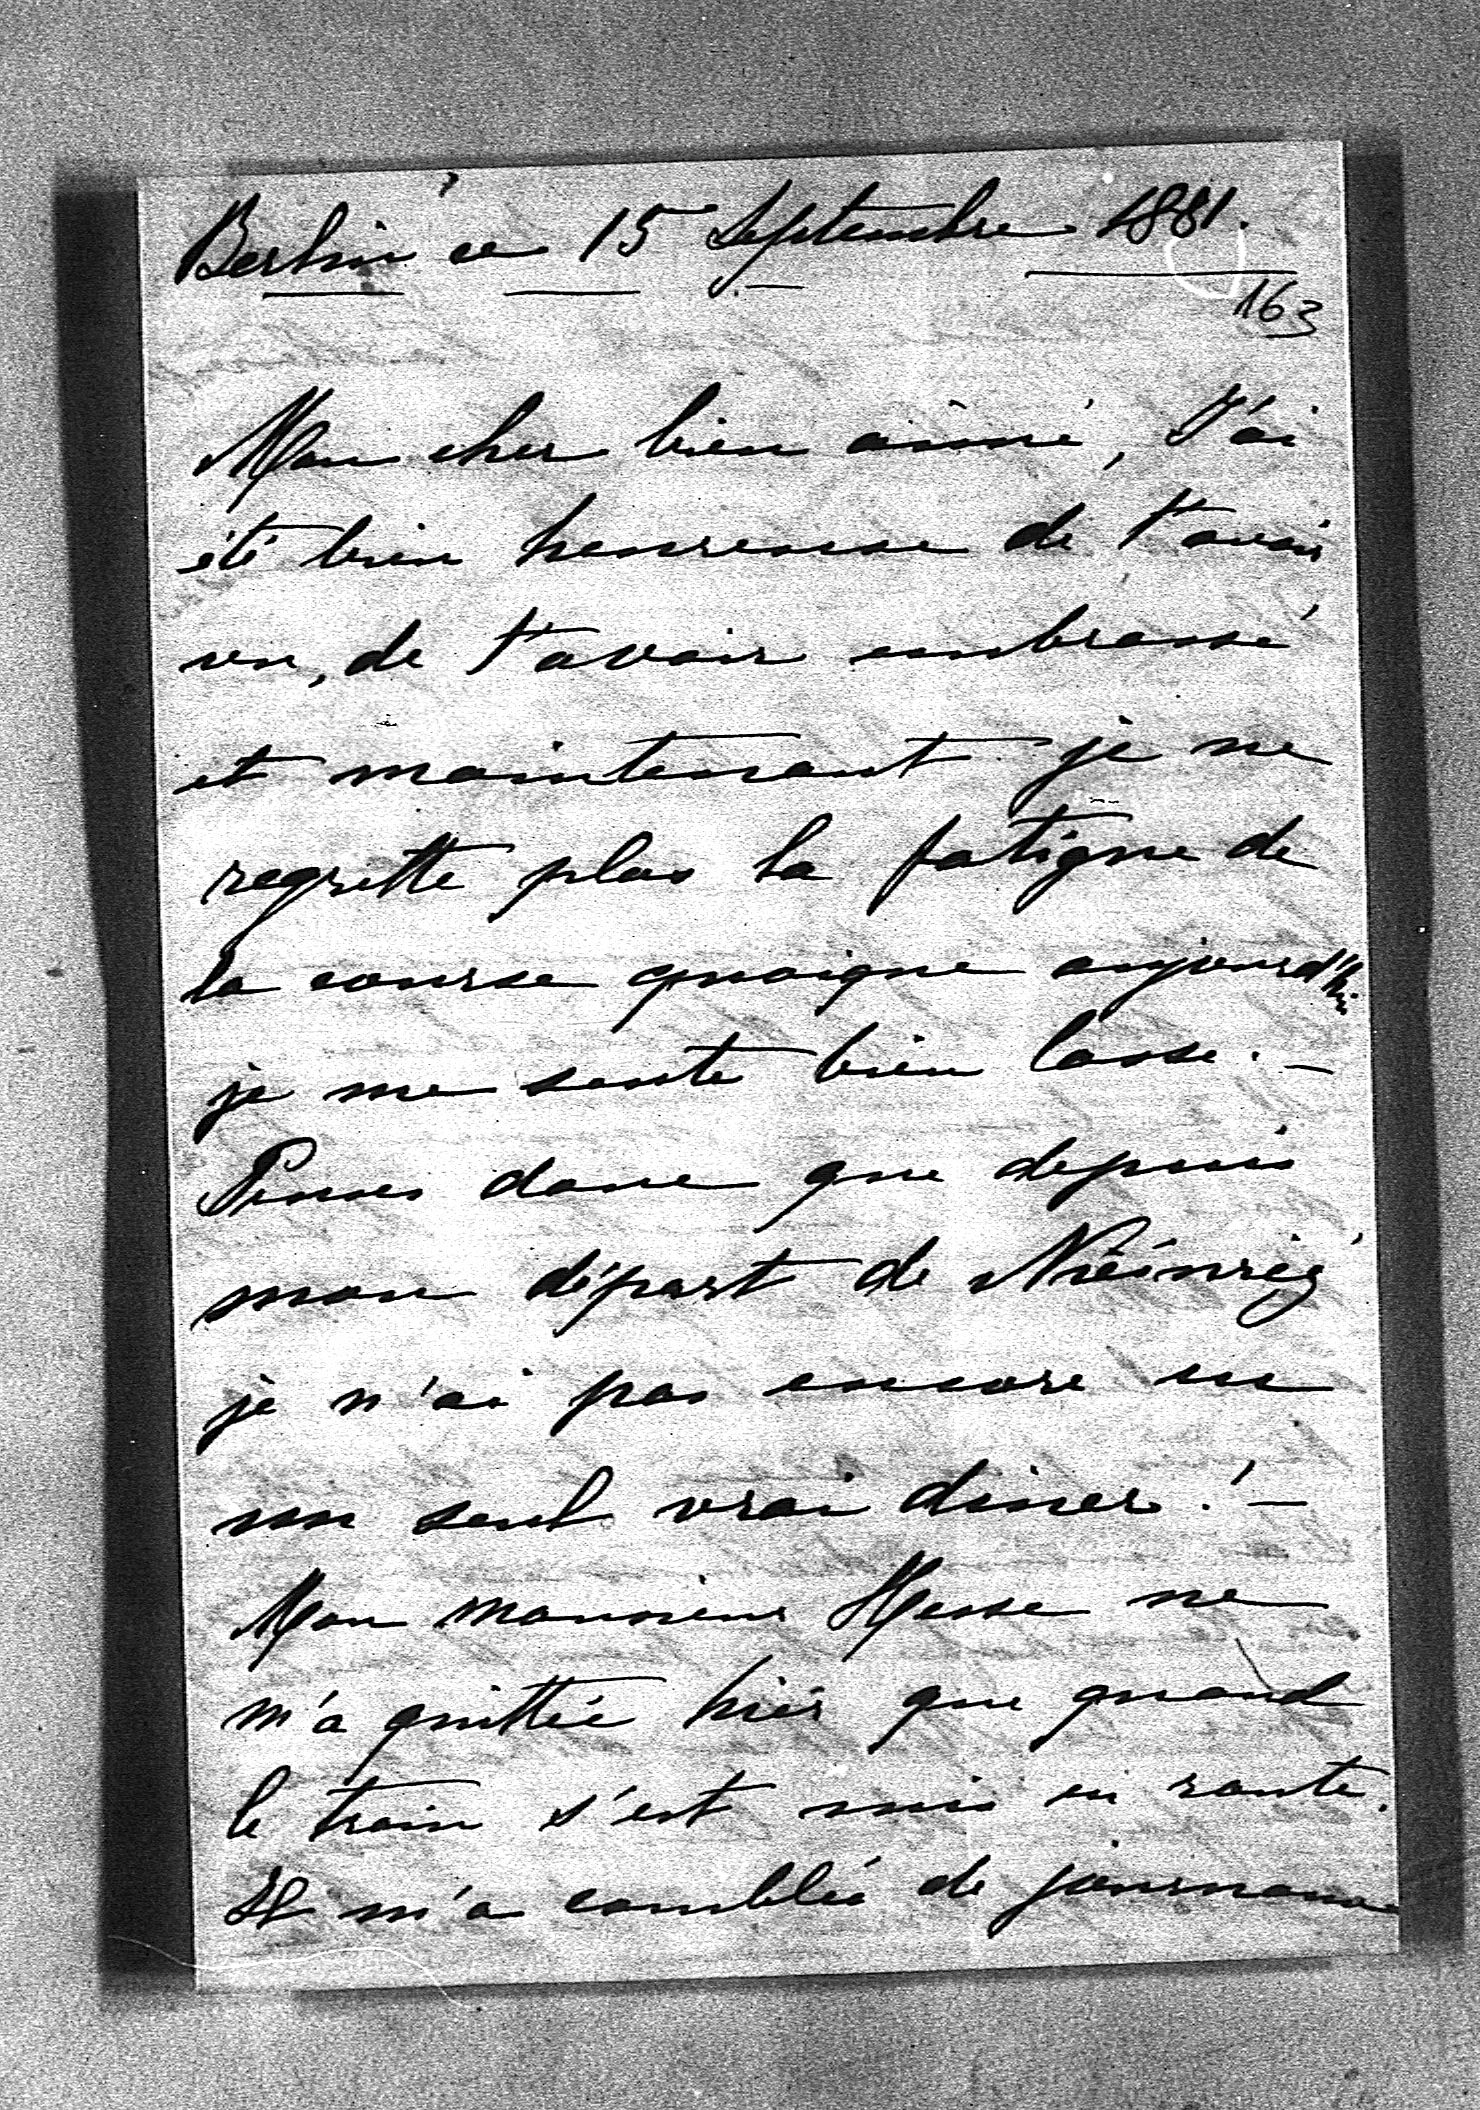 Berlin ce 15 Septembre 1881.
163
Mon cher bien aimé, J'ai
été bien heureuse de t'avoir
vu, de t'avoir embrassé
et maintenant je ne
regrette plus la fatigue de
la course quoique aujourd'hui
je me sente bien lasse. —
Penses donc que depuis
mon départ de
je n'ai pas encore eu
un seul vrai diner! —
Mon monsieur Hesse ne
m'a quittée hier que quand
le train s'est mis en route.
Il m'a comblée de journaux